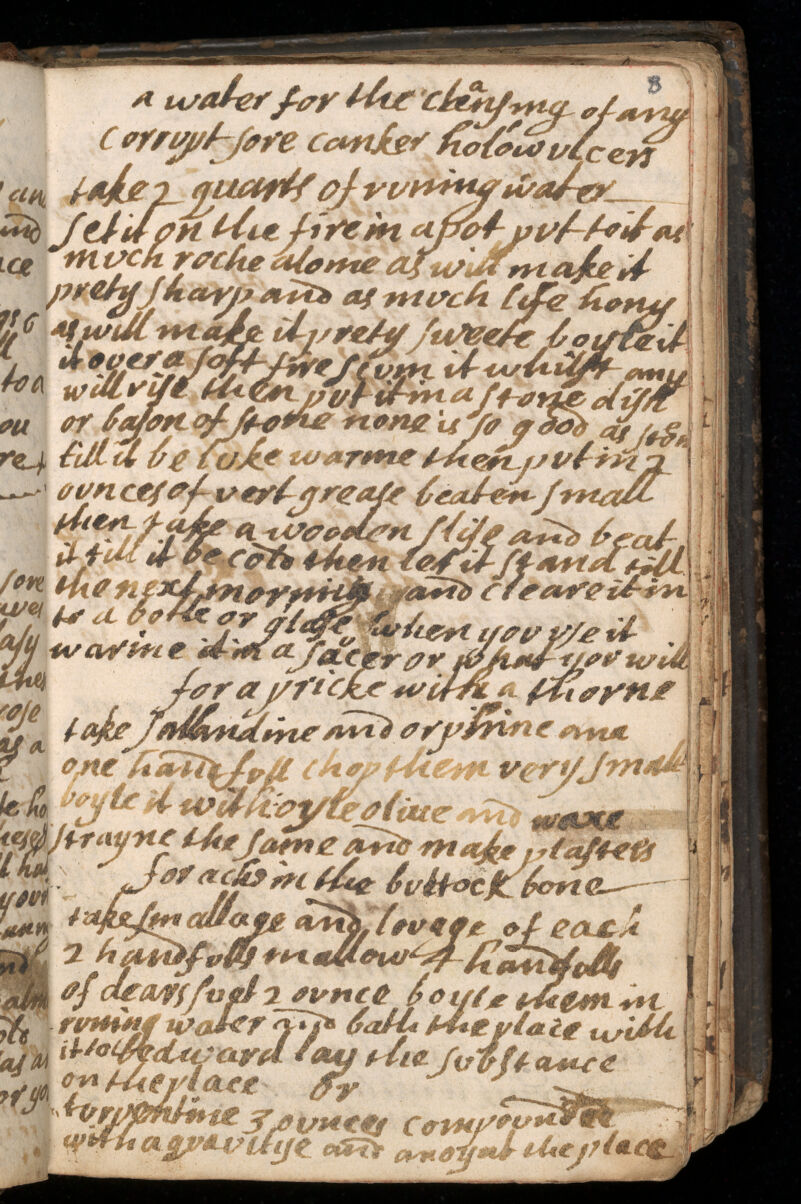 8
a water for the cleansing of any
corrupt sore canker holow ulcers
take 2 quarts of runing water
set it on the fire in a pot put to it as
much roche alome as will make it
prety sharp and as much life hony
as will make it prety sweete boyle it
it over a soft fire scum it whilst any
will rise then put it in a stone dish
or bason of stone none is so good as ston
till it be luke warme then put in 2
ounces of vert grease beaten small
then take a wooden slise and beat
it till it be cold then let it stand till
the next morning and cleare it in
to a botle or glase when you use it
warme it in a sacer or what you will
for a pricke with a thorne
take sallandine and orphine ana
one handfull chop them very small
boyle it with oyle olive and waxe
strayne the same and make plasters
for ache in the buttock bone
take smallage and lovage of each
2 handfulls mallow 4 handfulls
of dears suet 2 ounce boyle them in
runing water and bath the place with
it to bedward lay the substance
on the place or
turpentine 3 ounces compounded
with aquavitye and anoynt the place